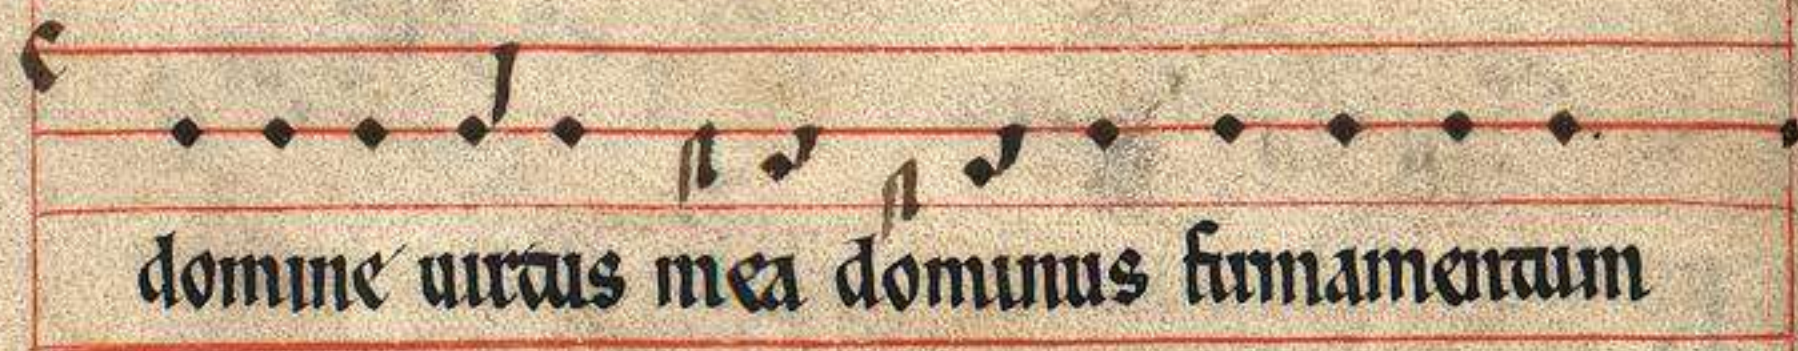 domine uirtus mea dominus firmamentum